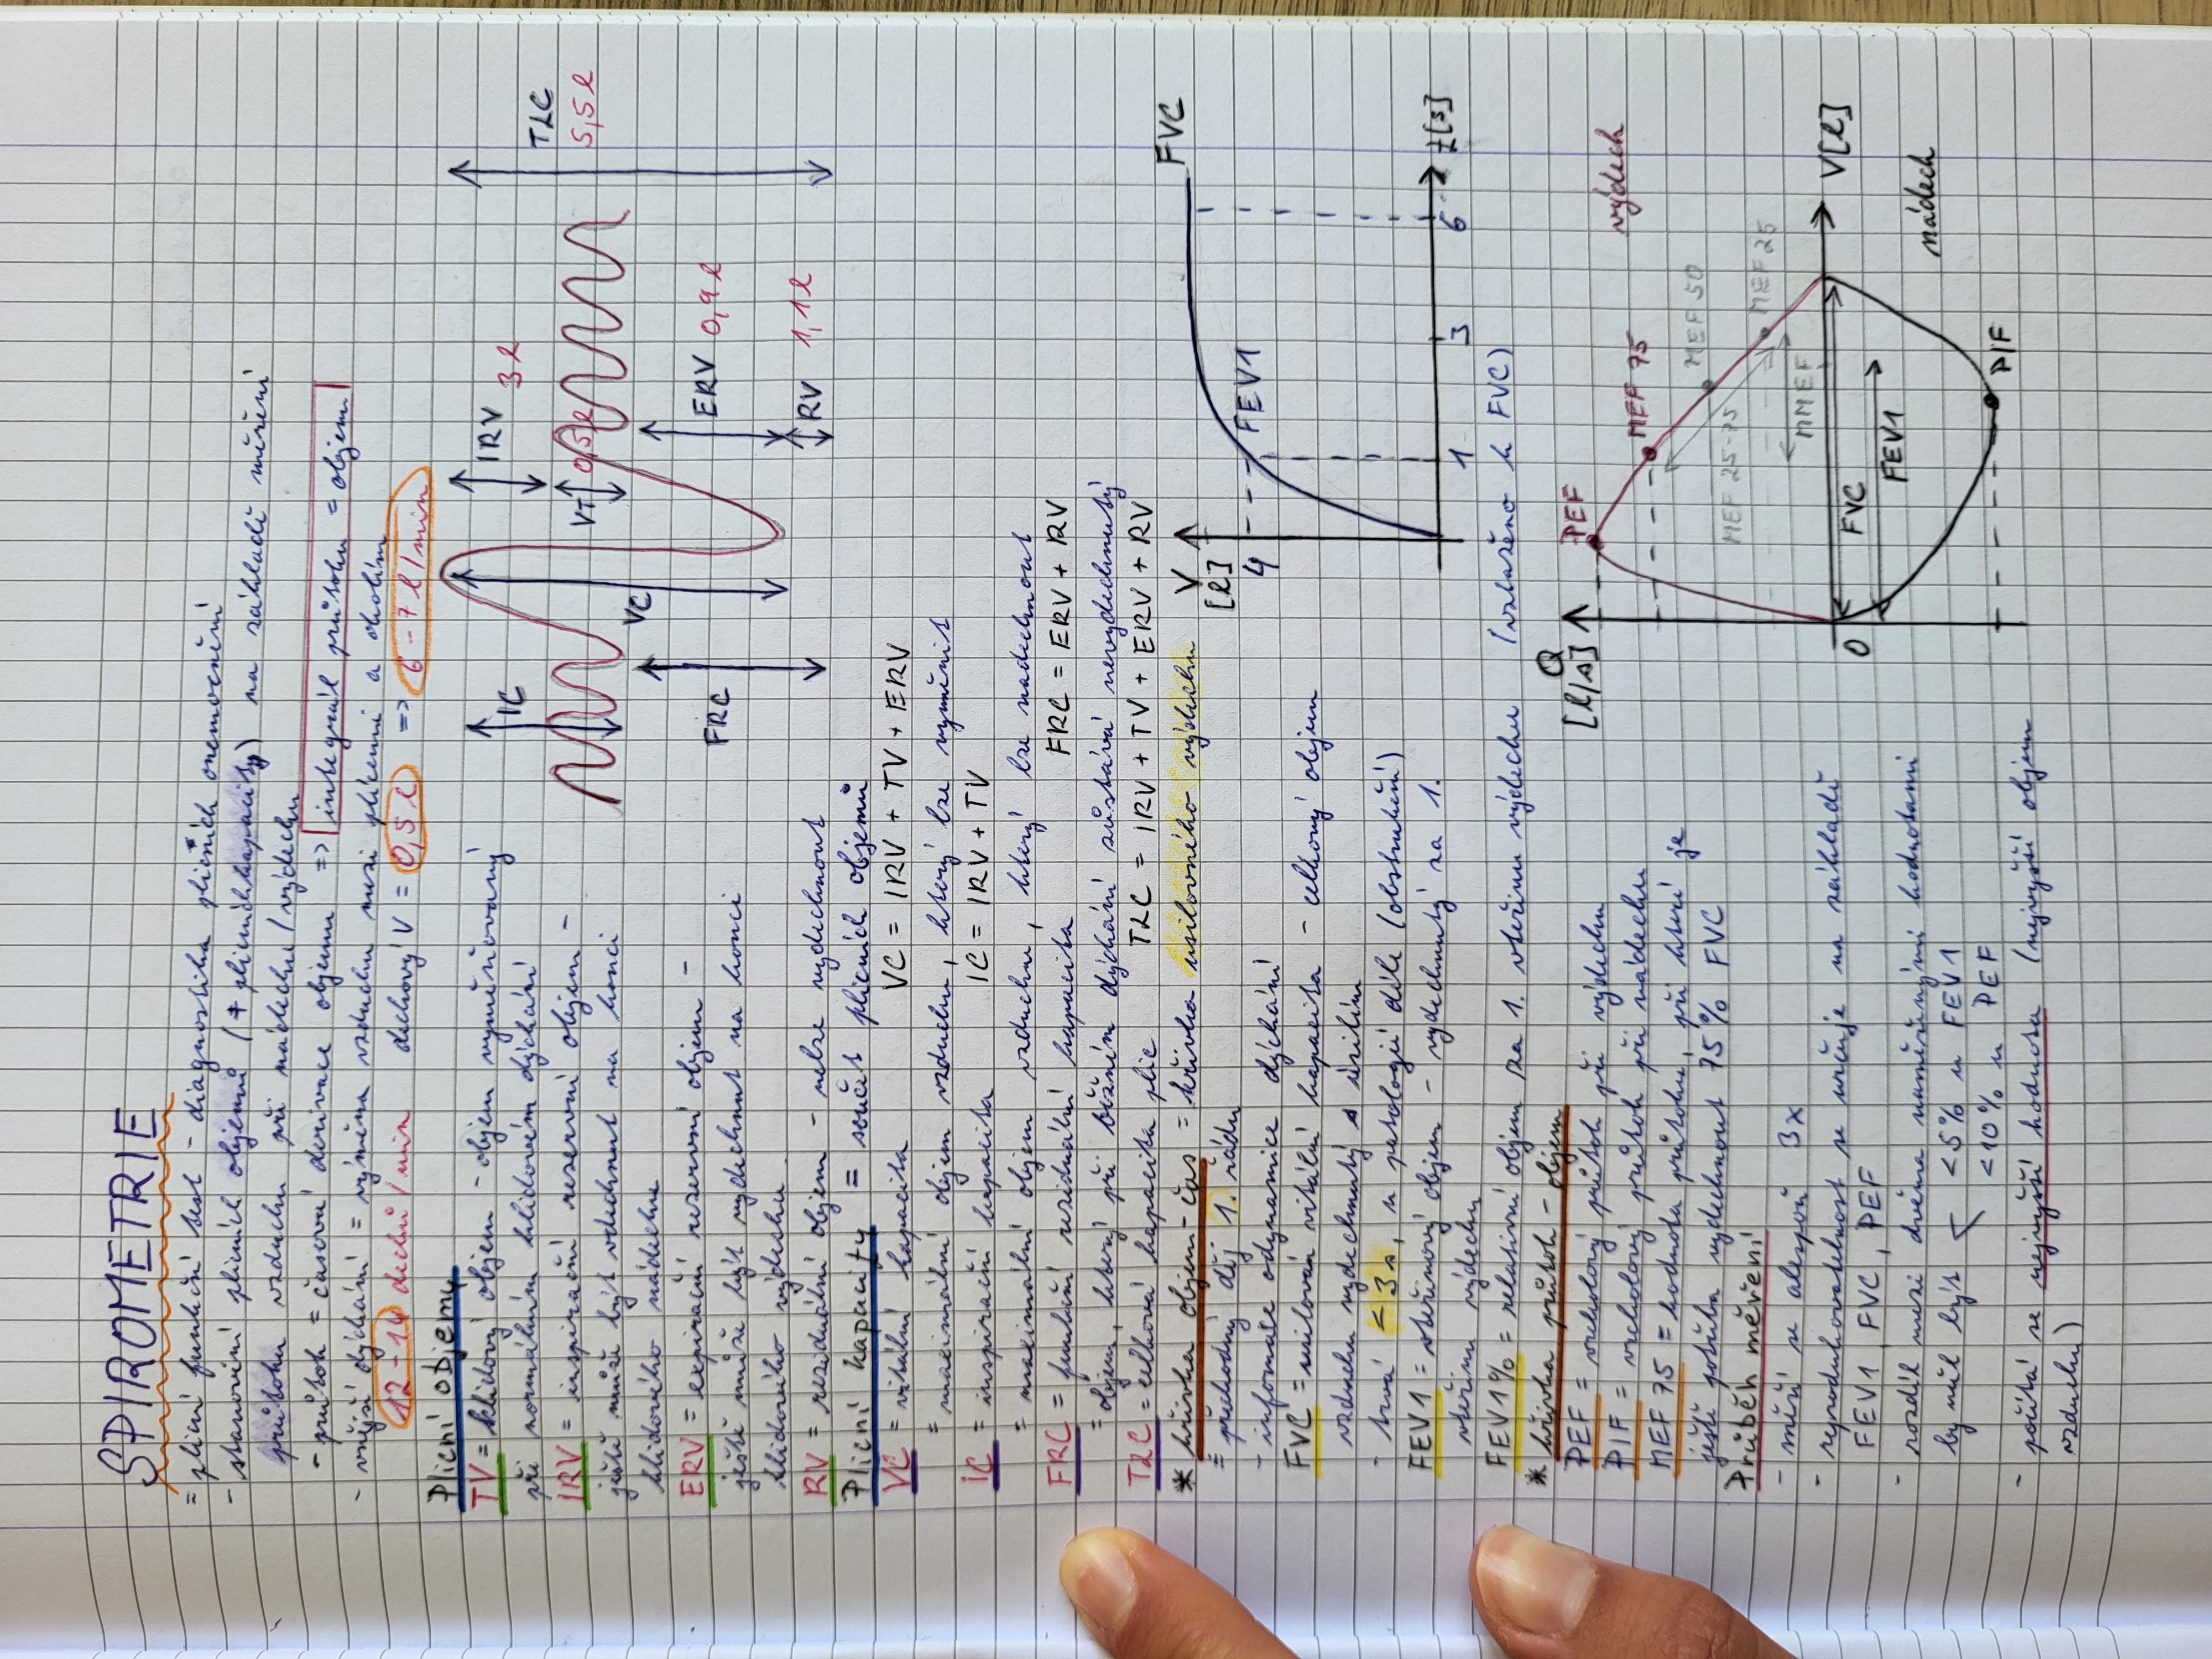 SPIROMETRIE
= plicní funkční test - diagnostika plicních onemocnění
- stanovení plicních objemů (+ plicních kapacity) na základě měření
průtoku vzduchu při nádechu / výdechu
- průtok = časová derivace objemu => integrál průtoku = objem
- vnější dýchání = výměna vzduchu mezi plícemi a okolím
12 - 14 dechů / min dechový V = 0,5 l => 6 - 7 l / min
Plicní objemy
TV = klidový objem - objem vyměňovaný
při normálním klidovém dýchání
IRV = inspirační rezervní objem -
ještě může být vdechnut na konci
klidového nádechu
ERV = expirační rezervní objem -
ještě může být vydechnut na konci
klidového výdechu
RV = reziduální objem - nelze vydechnout
IC
IRV 3 l
TLC
5,5 l
VT 0,5 l
VC
FRC
ERV 0,9 l
RV 1,1 l
Plicní kapacity = součet plicních objemů
VC = vitální kapacita VC = IRV + TV + ERV
= maximální objem vzduchu, který lze vyměnit
IC = inspirační kapacita IC = IRV + TV
= maximální objem vzduchu, který lze nadechnout
FRC = funkční reziduální kapacita FRC = ERV + RV
= objem, který při běžném dýchání zůstává nevydechnutý
TLC = celková kapacita plic TLC = IRV + TV + ERV + RV
* křivka objem-čas = křivka usilovného výdechu
= přechodný děj 1. řádu
- informace o dynamice dýchání
FVC = usilovná vitální kapacita - celkový objem
vzduchu vydechnutý s úsilím
- trvá < 3s, u patologií déle (obstrukční)
FEV1 = vteřinový objem - vydechnutý za 1.
vteřinu výdechu
FEV1% = relativní objem za 1. vteřinu výdechu (vztaženo k FVC)
V
[l]
4
FEV1
FVC
1 3 6 t[s]
* křivka průtok - objem
PEF = vrcholový průtok při výdechu
PIF = vrcholový průtok při nádechu
MEF 75 = hodnota průtoku, při které je
ještě potřeba vydechnout 75% FVC
Průběh měření
- měří se alespoň 3x
- reprodukovatelnost se určuje na základě
FEV1, FVC, PEF
- rozdíl mezi dvěma naměřenými hodnotami
by měl být < <5% u FEV1
<10% u PEF
- počítá se nejvyšší hodnota (nejvyšší objem
vzduchu)
Q
[l/s]
PEF
výdech
MEF 75
MEF 50
MEF 25-75
MEF 25
MMEF
0
V[l]
FVC
FEV1
nádech
PIF